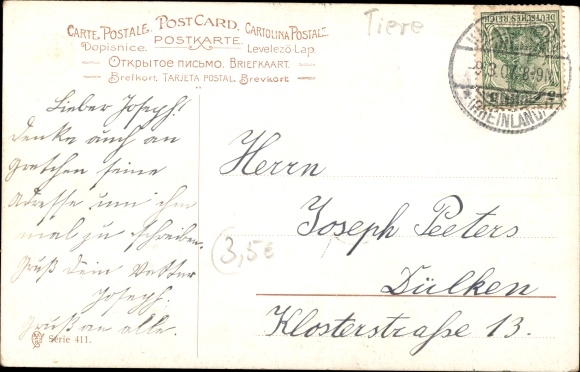 Tiere
CARTE POSTALE. POST CARD. CARTOLINA POSTALE.
Dopisnice. POSTKARTE. Levelező-Lap.
ОТКРЫТОЕ ПИСЬМО. BRIEFKAART.
Brefkort. TARJETA POSTAL. Brevkort.
DEUTSCHES REICH
.3.07.8-9N
(RHEINLAND)
Lieber Joseph!
Denke auch an
Gretchen seine
Adresse um ihm
mal zu schreiben.
Gruß Dein Vetter
Joseph.
Gruß an alle.
Herrn
Joseph Peeters
Dülken
Klosterstraße 13.
3,5€
Serie 411.